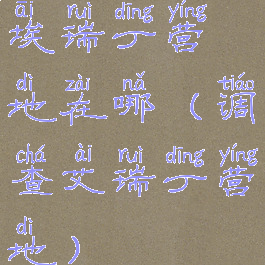 āi ruì dīng yíng
埃瑞丁营
dì zài nǎ tiáo
地在哪（调
chá ài ruì dīng yíng
查艾瑞丁营
dì
地）